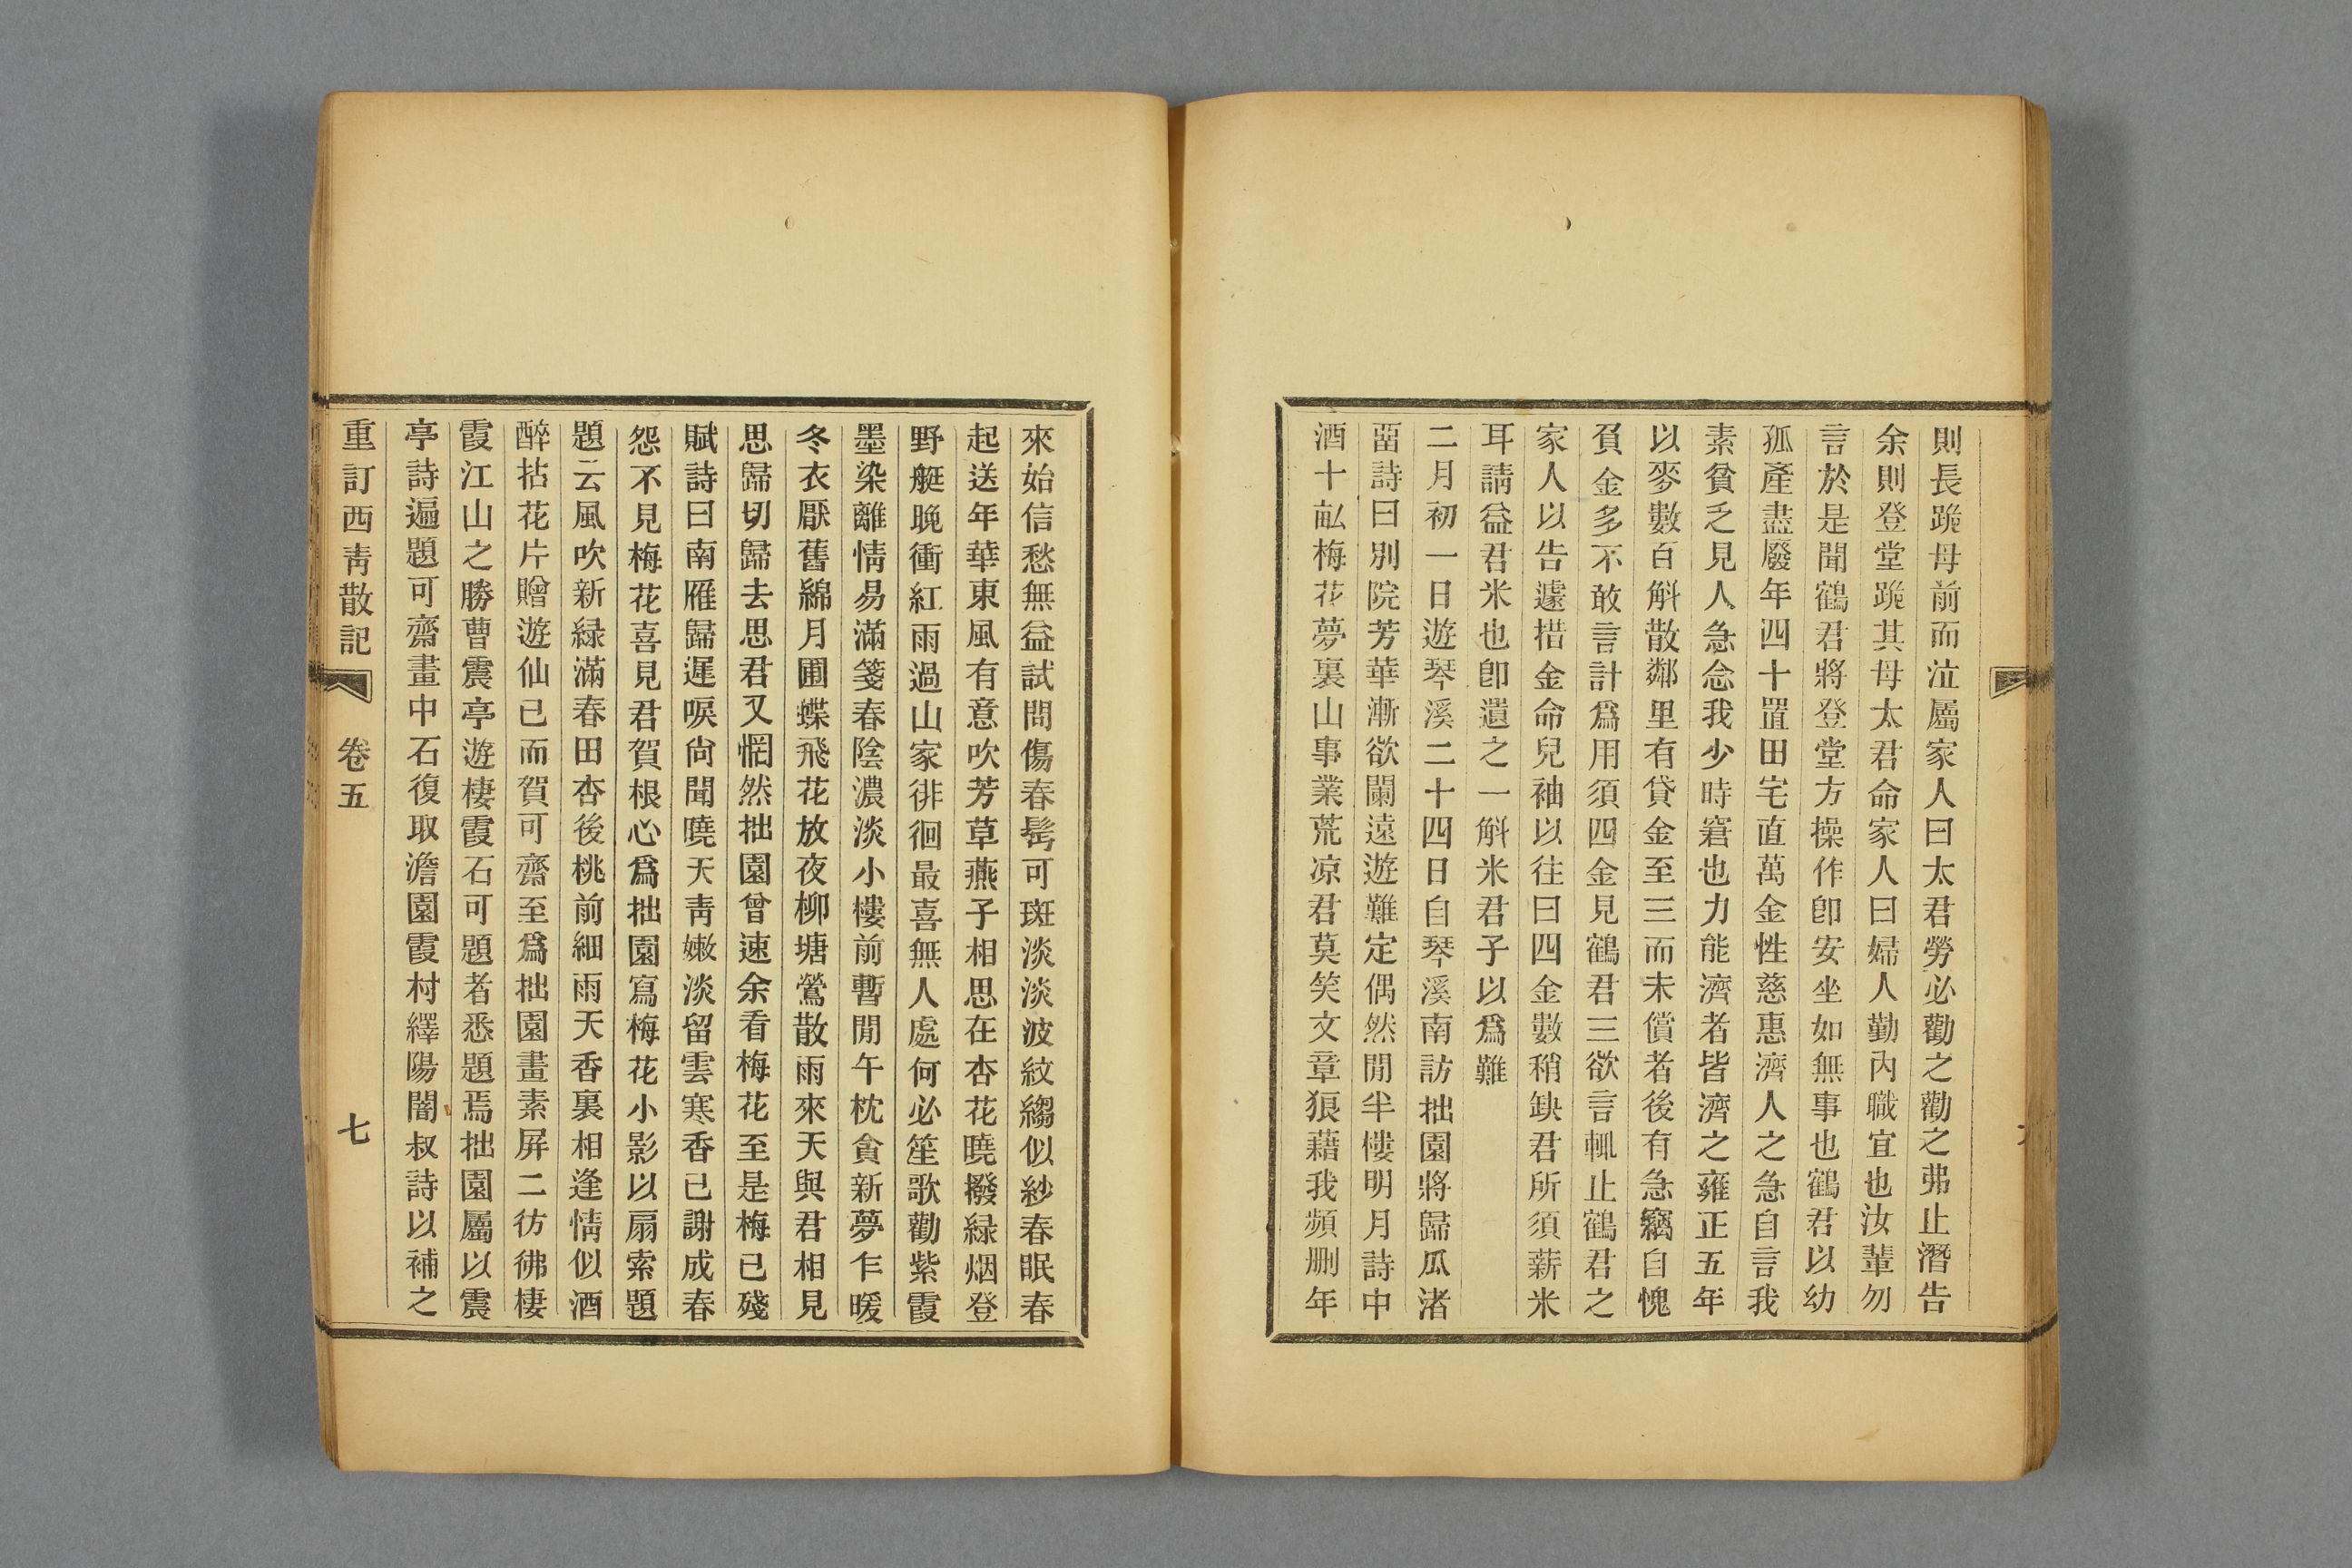 則長跪母前而泣屬家人曰太君勞必勸之勸之弗止潛告
余則登堂跪其母太君命家人曰婦人勤內職宜也汝輩勿
言於是聞鶴君將登堂方操作卽安坐如無事也鶴君以幼
孤產盡廢年四十置田宅直萬金性慈惠濟人之急自言我
素貧乏見人急念我少時窘也力能濟者皆濟之雍正五年
以麥數百斛散鄰里有貸金至三而未償者後有急竊自愧
負金多不敢言計爲用須四金見鶴君三欲言輒止鶴君之
家人以告遽措金命兒袖以往曰四金數稍缺君所須薪米
耳請益君米也卽遺之一斛米君子以爲難
二月初一日遊琴溪二十四日自琴溪南訪拙園將歸瓜渚
畱詩曰別院芳華漸欲闌遠遊難定偶然閒半樓明月詩中
酒十畝梅花夢裏山事業荒凉君莫笑文章狼藉我頻刪年
來始信愁無益試問傷春髩可斑淡淡波紋縐似紗春眠春
起送年華東風有意吹芳草燕子相思在杏花曉撥緑烟登
野艇晚衝紅雨過山家徘徊最喜無人處何必笙歌勸紫霞
墨染離情易滿箋春陰濃淡小樓前暫閒午枕貪新夢乍暖
冬衣厭舊綿月圃蝶飛花放夜柳塘鶯散雨來天與君相見
思歸切歸去思君又惘然拙園曾速余看梅花至是梅已殘
賦詩曰南雁歸遲唳尙聞曉天靑嫩淡留雲寒香已謝成春
怨不見梅花喜見君賀根心爲拙園寫梅花小影以扇索題
題云風吹新緑滿春田杏後桃前細雨天香裏相逢情似酒
醉拈花片贈遊仙已而賀可齋至爲拙園畫素屏二彷彿棲
霞江山之勝曹震亭遊棲霞石可題者悉題焉拙園屬以震
亭詩遍題可齋畫中石復取澹園霞村繹陽闇叔詩以補之
重訂西靑散記 卷五 七